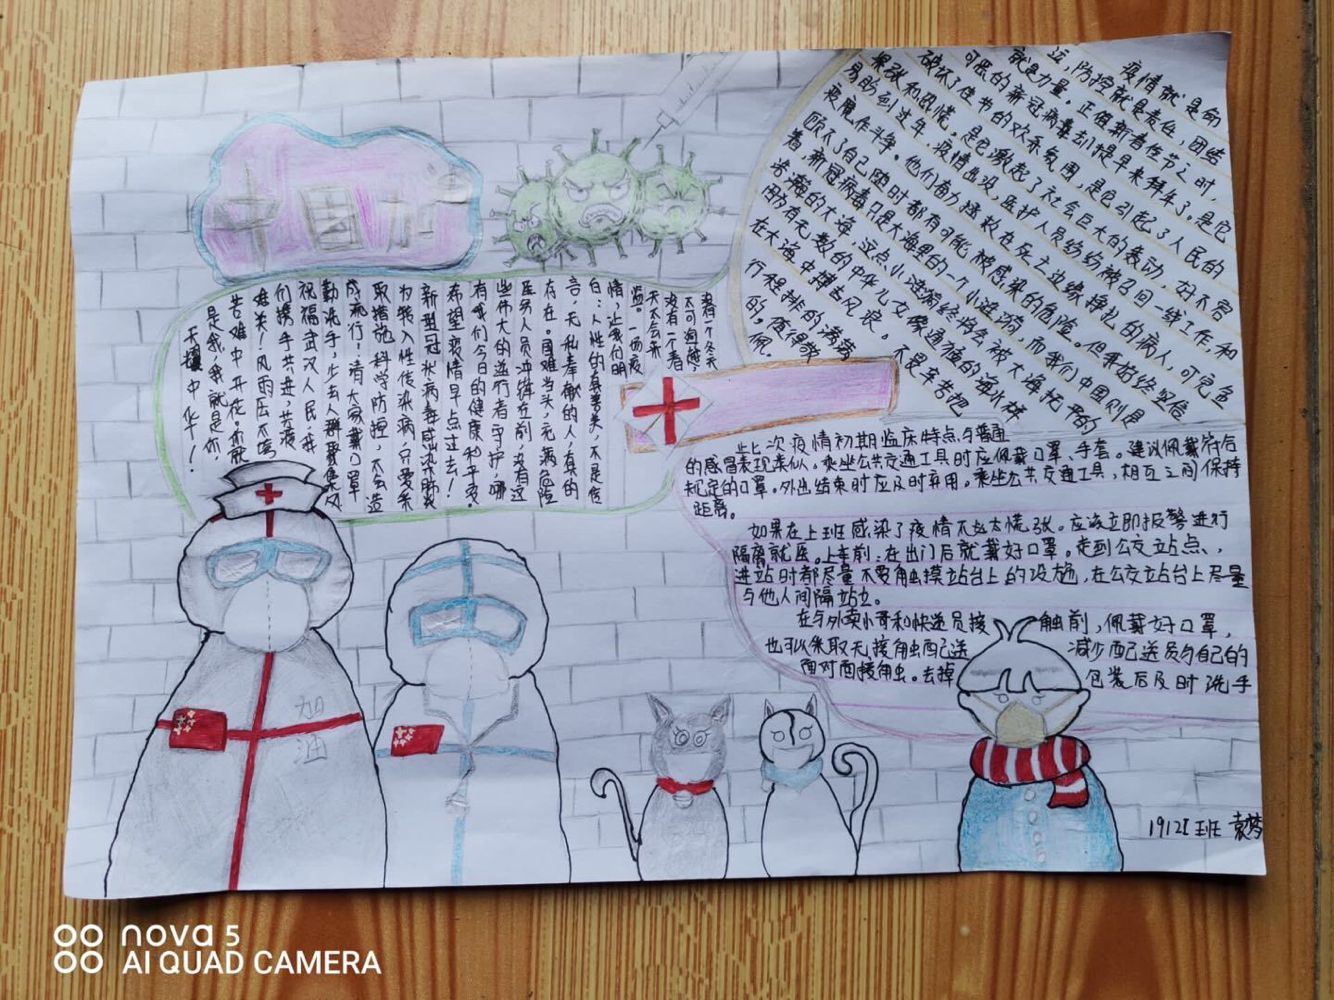 中国加油
没有一个冬天
不可逾越，
没有一个春
天不会来
临。一场疫
情，让我们明
白：人性的真善美，不是谎
言。无私奉献的人，真的
存在。国难当头，无惧危险
医务人员冲锋在前，没有这
些伟大的逆行者守护，哪
有我们今日的健康和平安。
希望疫情早点过去！
新型冠状病毒感染肺炎
为我入性传染病，只要采
取措施，科学防控，不会造
成流行，请大家戴口罩
勤洗手，少去人群聚集处
祝福武汉人民，我
们携手共进，共渡
难关！风雨压不垮
苦难中开花。你就
是我，我就是你
天耀中华！
疫情就是命
运，防控就是责任，团结
就是力量。正值新春佳节之时，
可恶的新冠病毒却提早来拜年了，是它
破坏了佳节的欢乐氛围，是它引起了人民的
紧张和恐慌，是它激起了社会巨大的轰动，好不容
易盼到过年，疫情出没，医护人员纷纷被召回一线工作，和
疫魔作斗争。他们奋力拯救在死亡边缘挣扎的病人，可完全
顾不了自己随时都有可能被感染的危险。但我始终坚信
着，新冠病毒只是大海里的一个小涟漪，而我们中国则是
浩瀚的大海，这点小涟漪终将会被大海抚平的
用所有无数的中华儿女像通雄的海水样
在大海中撑击风浪。不是辛苦把
行程排的满满
的，值得敬
佩。
此次疫情初期临床特点与普通
的感冒表现类似。乘坐公共交通工具时应佩戴口罩、手套。建议佩戴符合
规定的口罩。外出结束时应及时弃用。乘坐公共交通工具，相互之间保持
距离。
如果在上班感染了疫情不必太慌张。应该立即报警进行
隔离就医。上车前：在出门后就戴好口罩。走到公交站点、
进站时都尽量不要触摸站台上的设施，在公交站台上尽量
与他人间隔站立。
在与外卖小哥和快递员接触前，佩戴好口罩，
也可以采取无接触配送 减少配送员与自己的
面对面接触。去掉 包装后及时洗手
加
油
1912I班 袁梦
nova 5
AI QUAD CAMERA